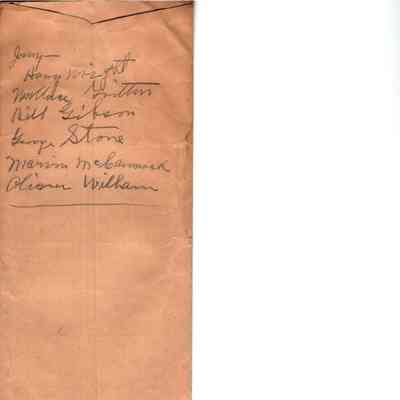 Jerry
Harry Wright
Wallace Griffin
Bill Gibson
George Stone
Marvin McCormack
Oliver William